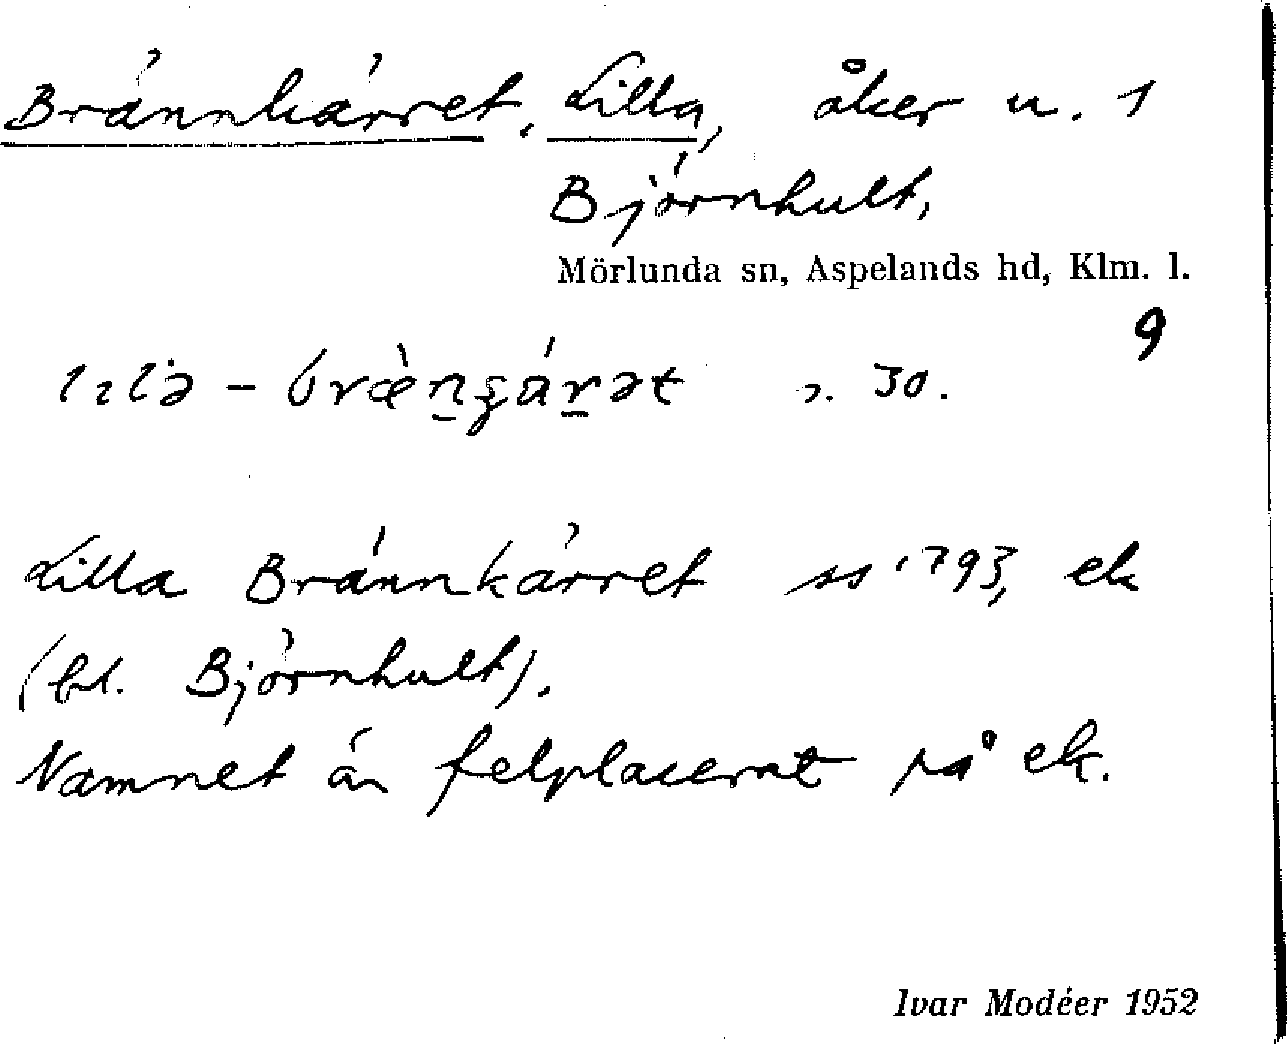 Brännkärret, Lilla, åker u. 1
Björnhult,
Mörlunda sn, Aspelands hd, Klm. l.
9
30.
Lilla Brännkärret ss 1793, ek
(bl. Björnhult).
Namnet är felplacerat på ek.
Ivar Modéer 1952